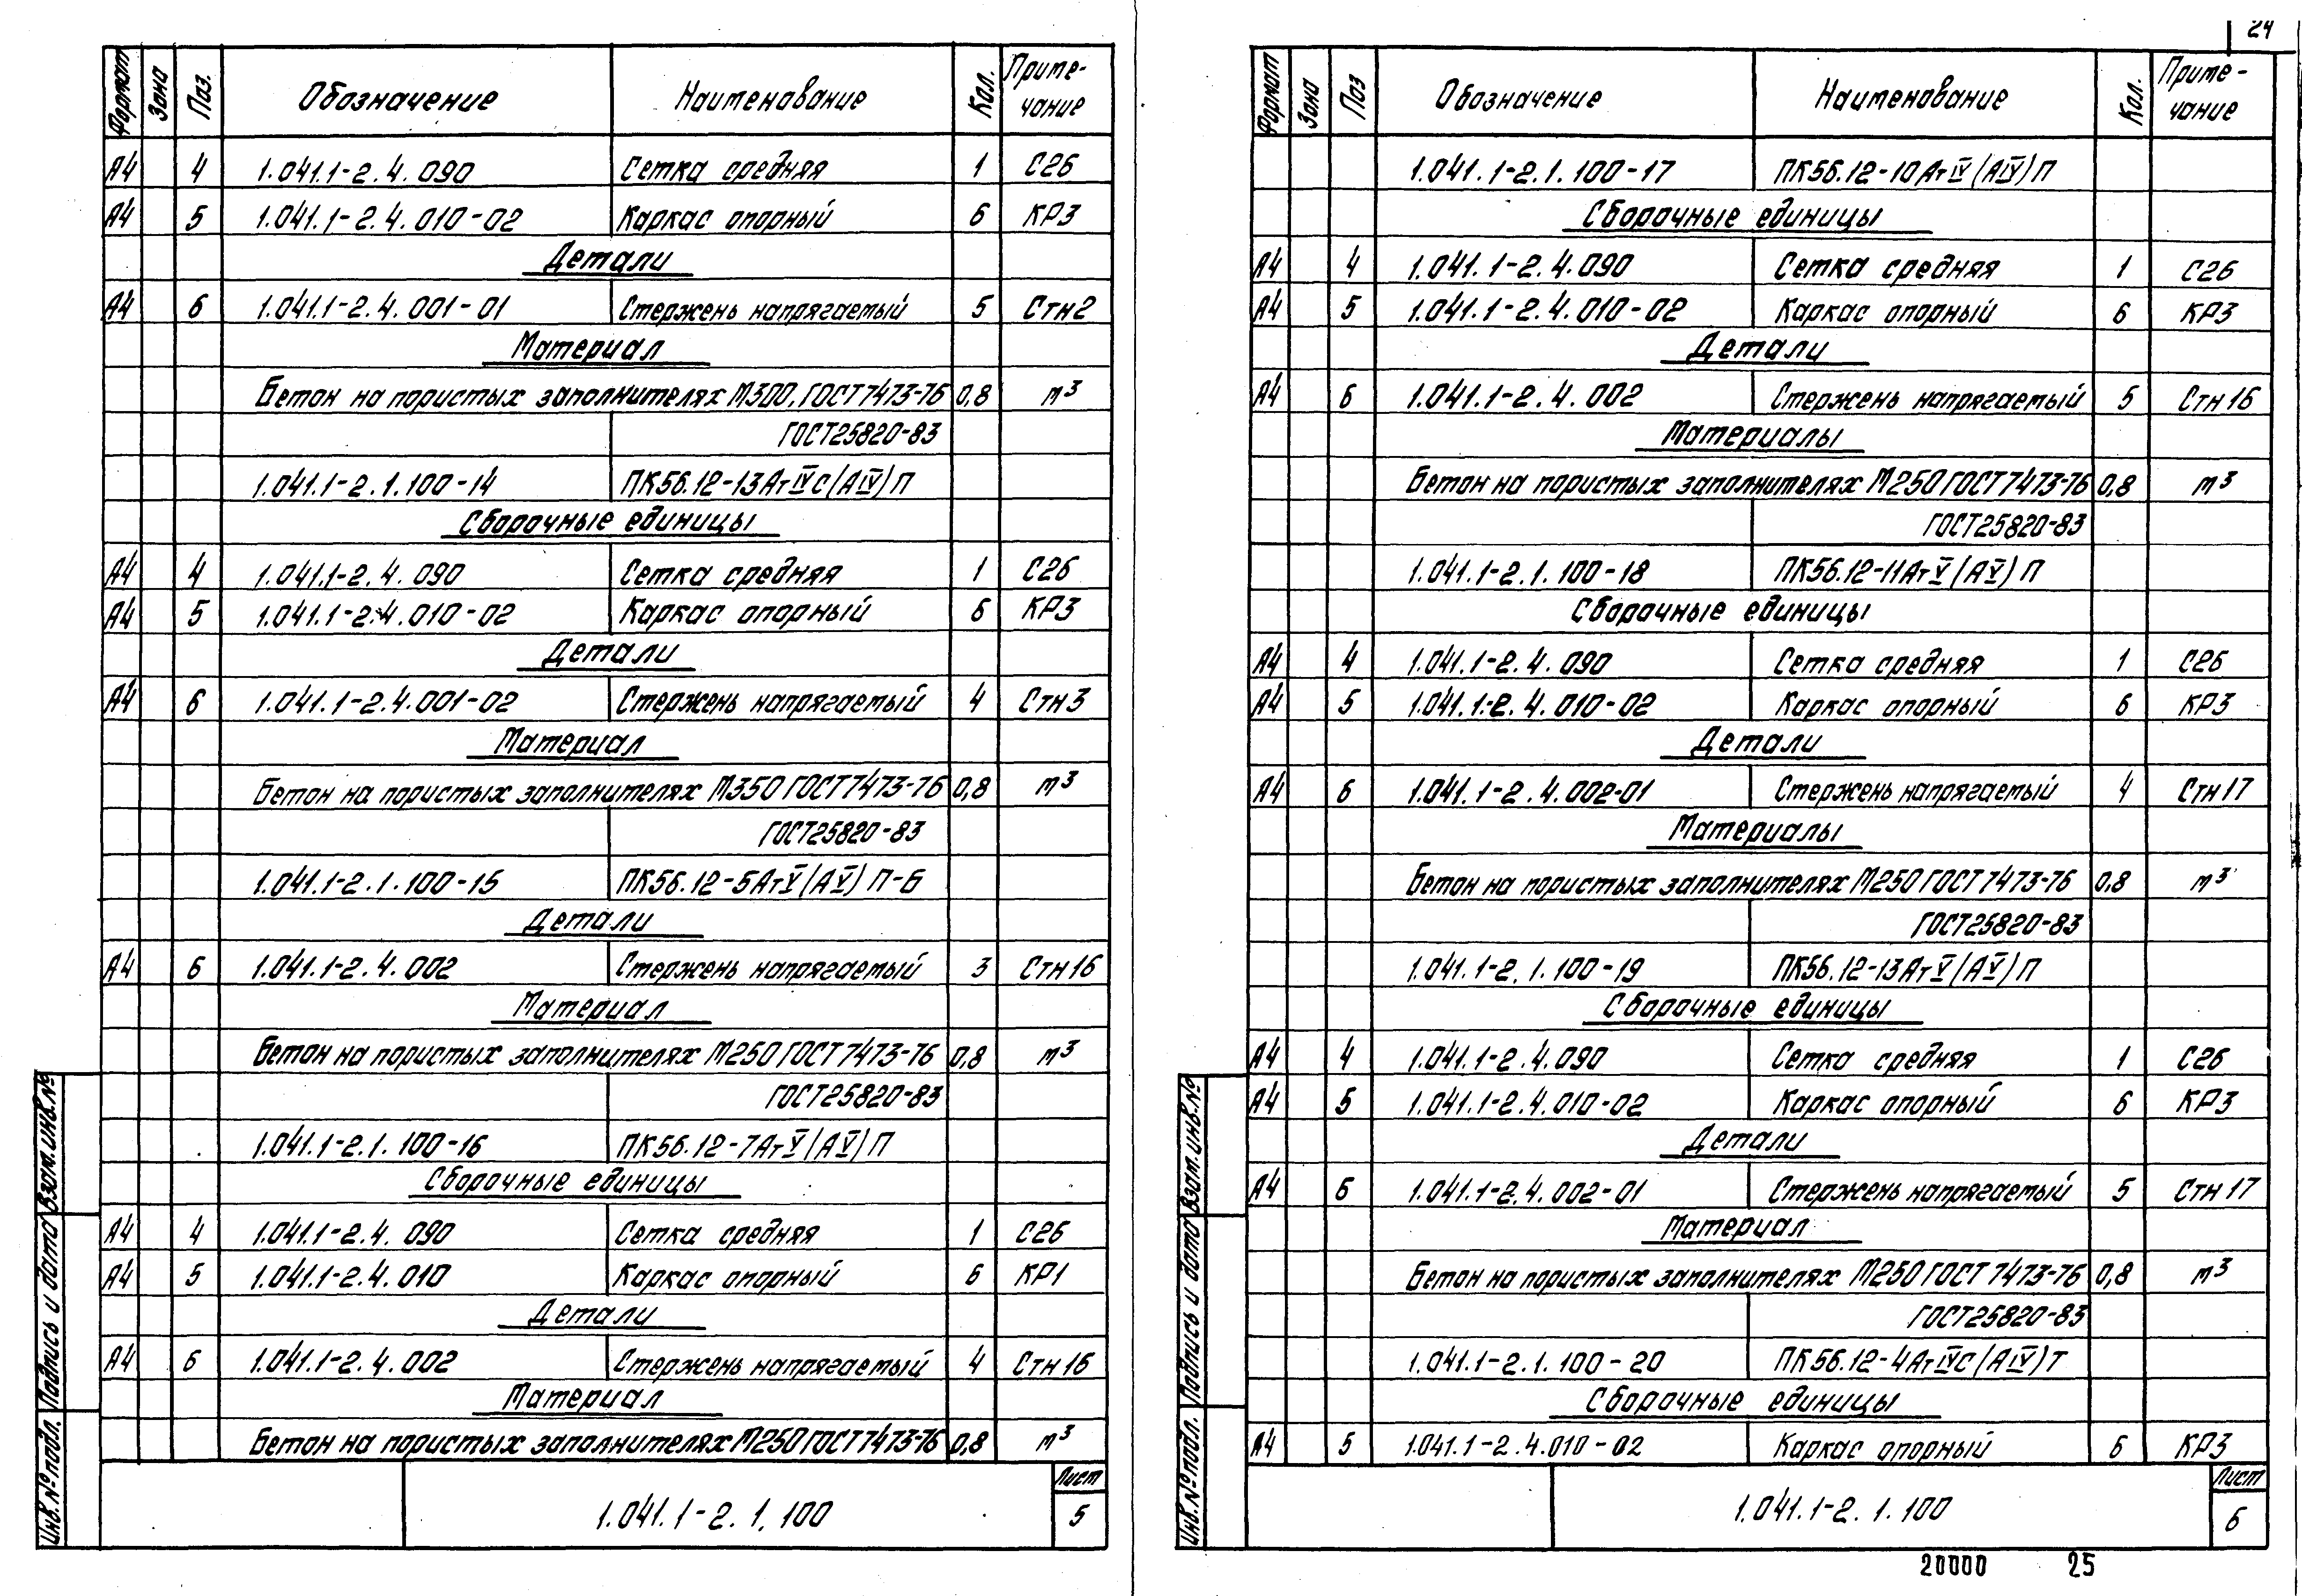 Формат Зона Поз. Обозначение Наименование Кол. Приме-
чание
А4 4 1.041.1-2.4.090 Сетка средняя 1 С26
А4 5 1.041.1-2.4.010-02 Каркас опорный 6 КР3
Детали
А4 6 1.041.1-2.4.001-01 Стержень напрягаемый 5 Стн2
Материал
Бетон на пористых заполнителях М300, ГОСТ7473-76 0,8 м³
ГОСТ25820-83
1.041.1-2.1.100-14 ПК56.12-13АтIVС(АIV)П
Сборочные единицы
А4 4 1.041.1-2.4.090 Сетка средняя 1 С26
А4 5 1.041.1-2.4.010-02 Каркас опорный 6 КР3
Детали
А4 6 1.041.1-2.4.001-02 Стержень напрягаемый 4 Стн3
Материал
Бетон на пористых заполнителях М350 ГОСТ7473-76 0,8 м³
ГОСТ25820-83
1.041.1-2.1.100-15 ПК56.12-5АтV(АV)П-Б
Детали
А4 6 1.041.1-2.4.002 Стержень напрягаемый 3 Стн16
Материал
Бетон на пористых заполнителях М250 ГОСТ7473-76 0,8 м³
ГОСТ25820-83
1.041.1-2.1.100-16 ПК56.12-7АтV(АV)П
Сборочные единицы
А4 4 1.041.1-2.4.090 Сетка средняя 1 С26
А4 5 1.041.1-2.4.010 Каркас опорный 6 КР1
Детали
А4 6 1.041.1-2.4.002 Стержень напрягаемый 4 Стн16
Материал
Бетон на пористых заполнителях М250 ГОСТ7473-76 0,8 м³
Инв.№подл. Подпись и дата Взам.инв.№
1.041.1-2.1.100
Лист
5
24
Формат Зона Поз Обозначение Наименование Кол. Приме-
чание
1.041.1-2.1.100-17 ПК56.12-10АтIV(АIV)П
Сборочные единицы
А4 4 1.041.1-2.4.090 Сетка средняя 1 С26
А4 5 1.041.1-2.4.010-02 Каркас опорный 6 КР3
Детали
А4 6 1.041.1-2.4.002 Стержень напрягаемый 5 Стн16
Материалы
Бетон на пористых заполнителях М250 ГОСТ7473-76 0,8 м³
ГОСТ25820-83
1.041.1-2.1.100-18 ПК56.12-11АтV(АV)П
Сборочные единицы
А4 4 1.041.1-2.4.090 Сетка средняя 1 С26
А4 5 1.041.1-2.4.010-02 Каркас опорный 6 КР3
Детали
А4 6 1.041.1-2.4.002-01 Стержень напрягаемый 4 Стн17
Материалы
Бетон на пористых заполнителях М250 ГОСТ7473-76 0,8 м³
ГОСТ25820-83
1.041.1-2.1.100-19 ПК56.12-13АтV(АV)П
Сборочные единицы
А4 4 1.041.1-2.4.090 Сетка средняя 1 С26
А4 5 1.041.1-2.4.010-02 Каркас опорный 6 КР3
Детали
А4 6 1.041.1-2.4.002-01 Стержень напрягаемый 5 Стн17
Материал
Бетон на пористых заполнителях М250 ГОСТ7473-76 0,8 м³
ГОСТ25820-83
1.041.1-2.1.100-20 ПК56.12-4АтIVС(АIV)Т
Сборочные единицы
А4 5 1.041.1-2.4.010-02 Каркас опорный 6 КР3
Инв.№подл. Подпись и дата Взам.инв.№
1.041.1-2.1.100
Лист
6
20000 25